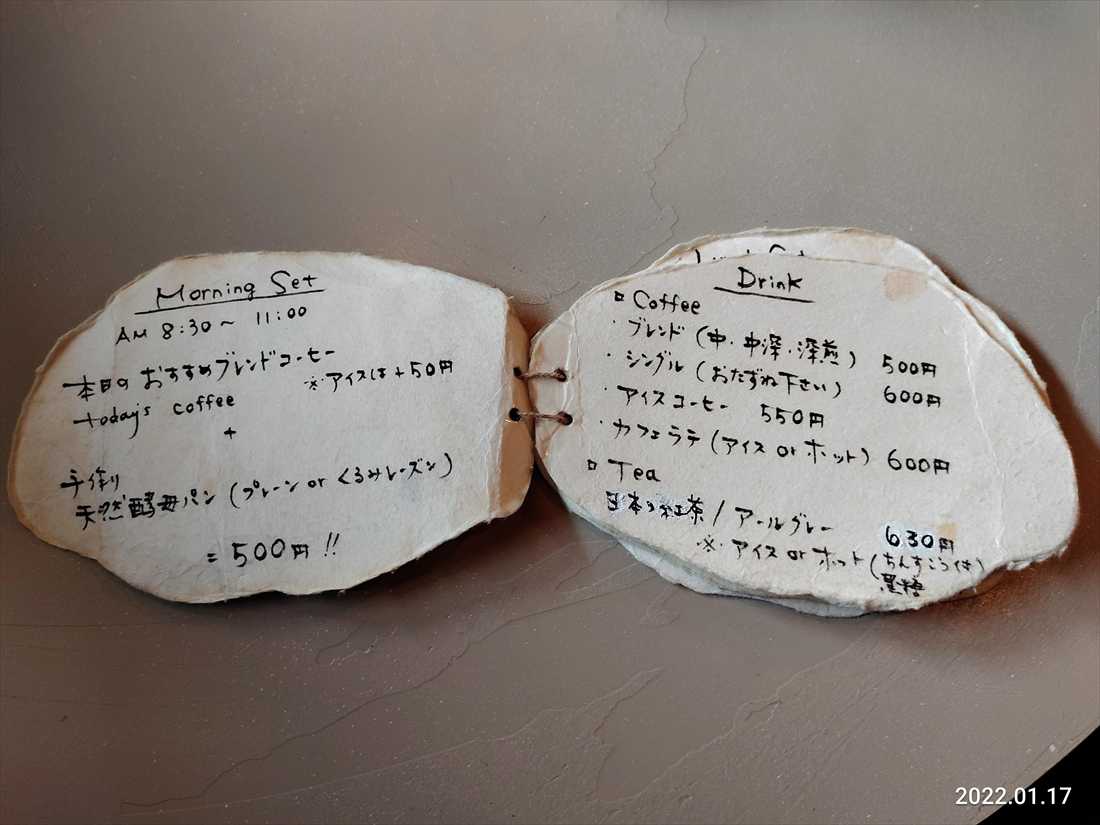 Morning Set
AM 8:30～ 11:00
本日の おすすめブレンドコーヒー
※アイスは+50円
today's coffee
+
手作り
天然酵母パン (プレーン or くるみレーズン)
= 500円!!
Drink
Coffee
・ブレンド (中・中深・深煎) 500円
・シングル (おたずね下さい) 600円
・アイスコーヒー 550円
・カフェラテ (アイス or ホット) 600円
Tea
日本の紅茶 / アールグレー 630円
※アイス or ホット (ちんすこう付)
黒糖
2022.01.17